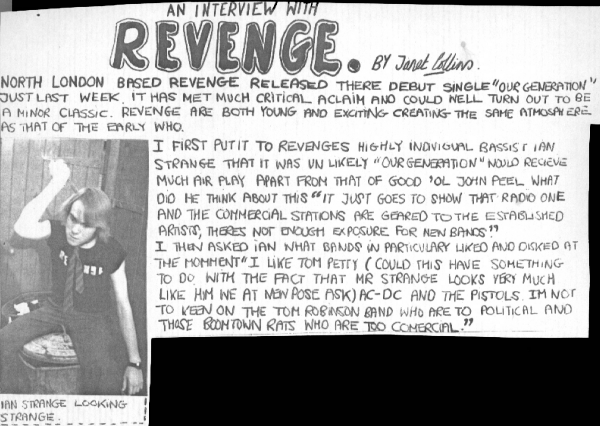 AN INTERVIEW WITH
REVENGE. BY Janet Collins.
NORTH LONDON BASED REVENGE RELEASED THERE DEBUT SINGLE "OUR GENERATION"
JUST LAST WEEK. IT HAS MET MUCH CRITICAL ACLAIM AND COULD WELL TURN OUT TO BE
A MINOR CLASSIC. REVENGE ARE BOTH YOUNG AND EXCITING CREATING THE SAME ATMOSPHERE
AS THAT OF THE EARLY WHO.
I FIRST PUT IT TO REVENGES HIGHLY INDIVIDUAL BASSIST IAN
STRANGE THAT IT WAS UN LIKELY "OUR GENERATION" WOULD RECIEVE
MUCH AIR PLAY APART FROM THAT OF GOOD 'OL JOHN PEEL. WHAT
DID HE THINK ABOUT THIS "IT JUST GOES TO SHOW THAT RADIO ONE
AND THE COMMERCIAL STATIONS ARE GEARED TO THE ESTABLISHED
ARTISTS, THERES NOT ENOUGH EXPOSURE FOR NEW BANDS."
I THEN ASKED IAN WHAT BANDS IN PARTICULARY LIKED AND DISKED AT
THE MOMMENT "I LIKE TOM PETTY (COULD THIS HAVE SOMETHING
TO DO WITH THE FACT THAT MR STRANGE LOOKS VERY MUCH
LIKE HIM WE AT NEW POSE ASK) AC-DC AND THE PISTOLS. IM NOT
TO KEEN ON THE TOM ROBINSON BAND WHO ARE TO POLITICAL AND
THOSE BOOMTOWN RATS WHO ARE TOO COMERCIAL."
IAN STRANGE LOOKING
STRANGE.